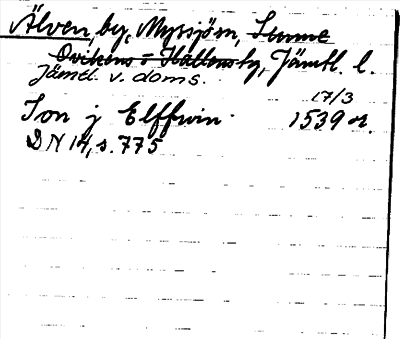 Älven, by, Myssjö sn, Sunne
Ovikens o Hallens tg, Jämtl. l.
Jämtl. v. doms.
17/3
Jon j Elffwin 1539 or.
DN 14, s. 775